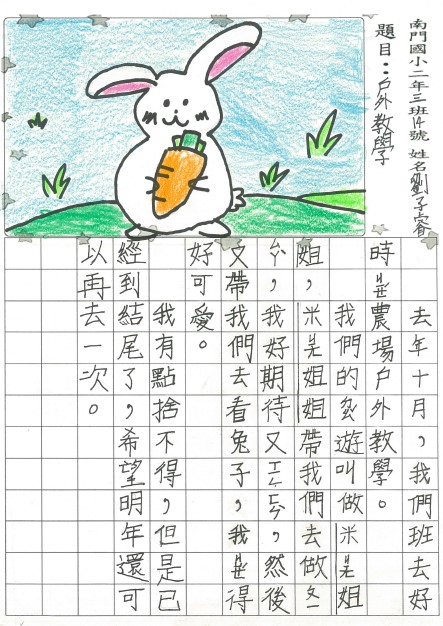 南門國小二年三班14號 姓名劉子睿
題目：戶外教學
去年十月，我們班去好
時農場戶外教學。
我們的遊叫做米姐
姐，米姐姐帶我們去做
ㄍㄢ，我好期待又ㄒㄧㄥㄈㄣˋ，然後
又帶我們去看兔子，我ㄐㄩㄝˊ得
好可愛。
我有點捨不得，但是已
經到結尾了，希望明年還可
以再去一次。